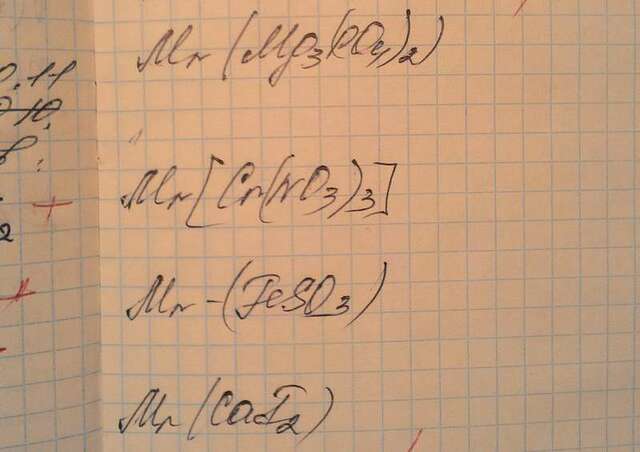 Mr (Mg3(PO4)2)
Mr [Cr(NO3)3]
Mr - (FeSO3)
Mr (CaI2)